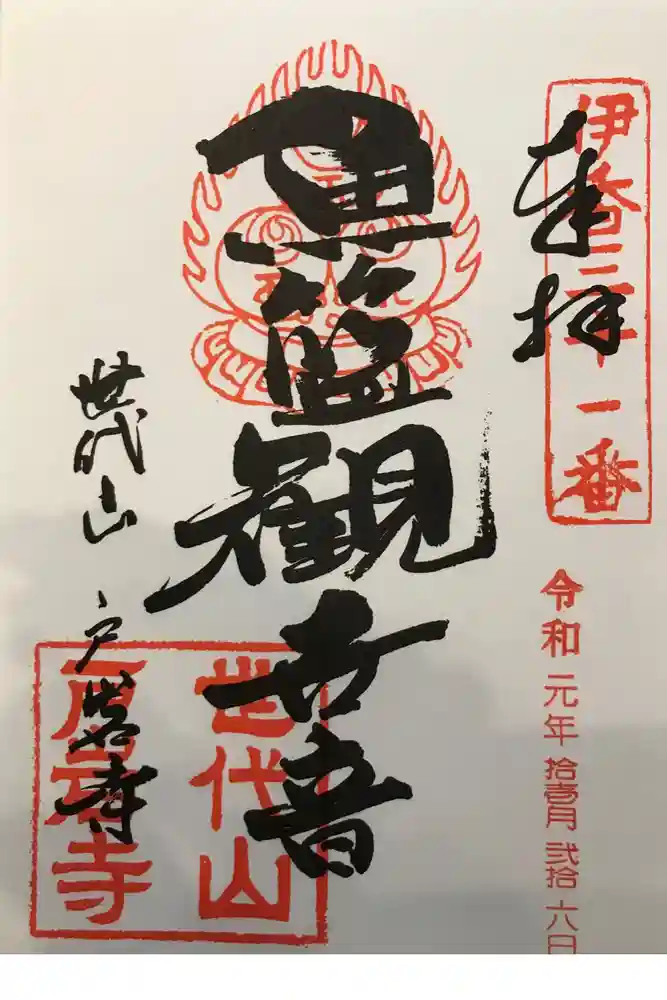 伊香三十一番
奉拝
令和元年拾壱月弐拾六日
魚籃観世音
世代山 戸岩寺
世代山
戸岩寺